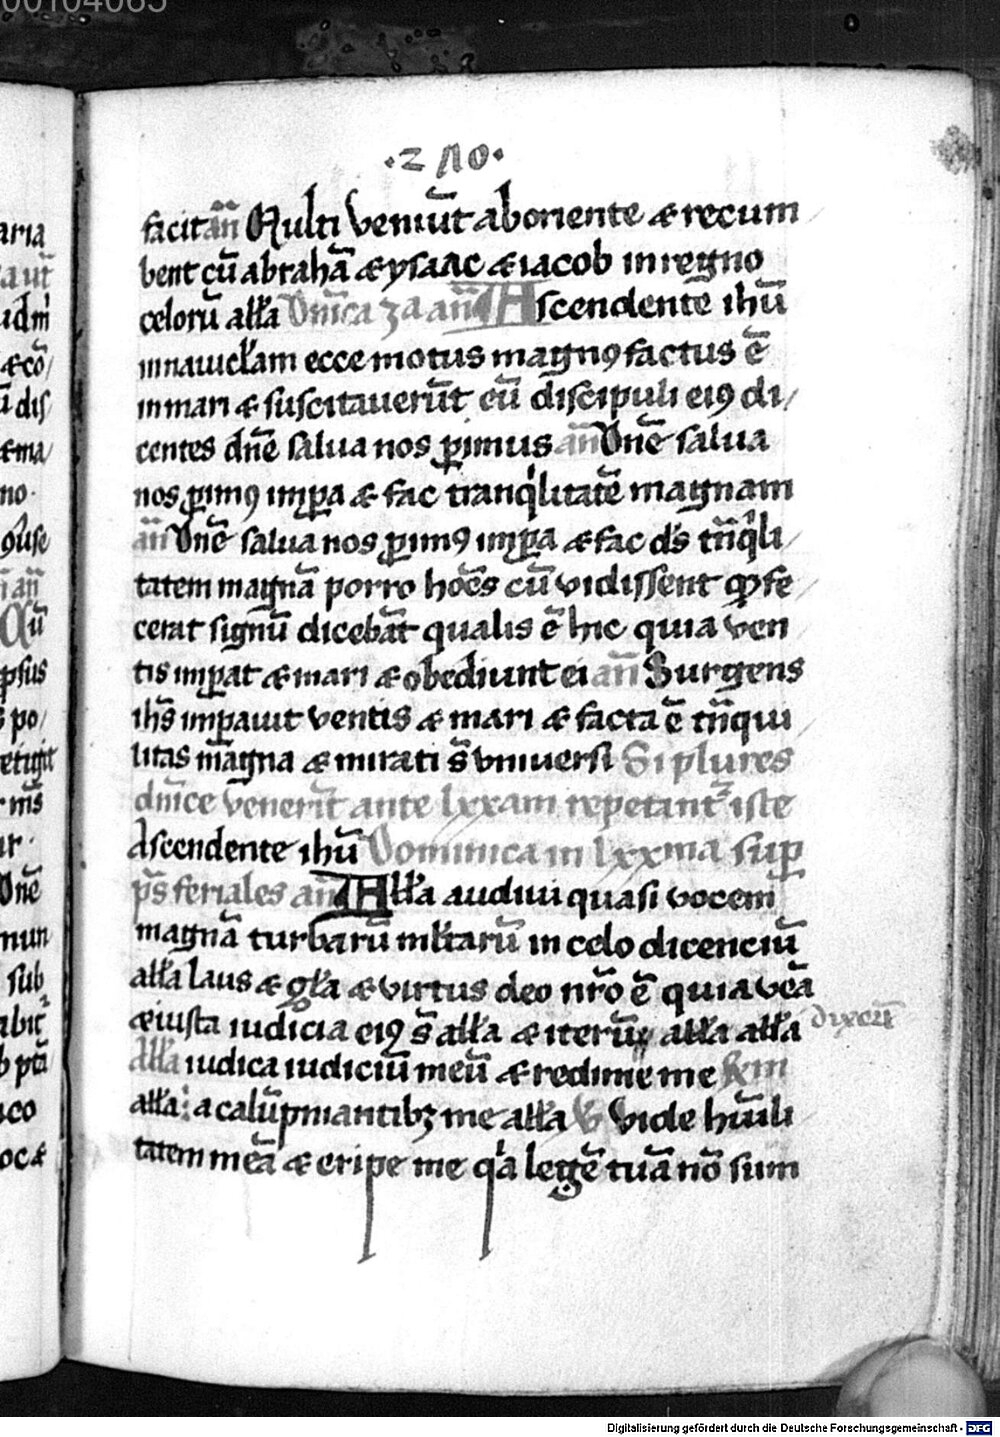 00104065
·2Λ0·
facit an̄ Multi veniūt ab oriente & recum
bent cū abrahā & ysaac & iacob in regno
celorū alla Dn̄ica 3a an̄ Ascendente ihū
in nauiclam ecce motus magnꝰ factus ē
in mari & suscitauerūt eū discipuli eiꝰ di/
centes dn̄e salua nos ꝑimus an̄ Dn̄e salua
nos ꝑimꝰ imꝑa & fac tranqⁱlitatē magnam
an̄ Dn̄e salua nos ꝑimꝰ imꝑa & fac ds̄ tn̄qⁱli/
tatem magnā porro hoēs cū vidissent qꝫ fe
cerat signū dicebāt qualis ē hic quia ven
tis imꝑat & mari & obediunt ei an̄ Surgens
ihs̄ imꝑauit ventis & mari & facta ē tn̄qui
litas magna & mirati s̄ vniuersi Si plures
dn̄ice venerīt ante lxxam repetantᷣ iste
Ascendente ihū Dominica in lxxma suꝑ
ps̄ feriales an̄ Alla audiui quasi vocem
magnā turbarū mltarū in celo dicenciū
alla laus & gla & virtus deo nr̄o ē quia veā
& iusta iudicia eiꝰ s̄ alla & iterū alla alla
dixerūt
Alla iudica iudiciū meū & redime me
alla a calūpniantibꝫ me alla V Vide hūili
tatem meā & eripe me qⁱa legē tuā nō sum
Digitalisierung gefördert durch die Deutsche Forschungsgemeinschaft - DFG